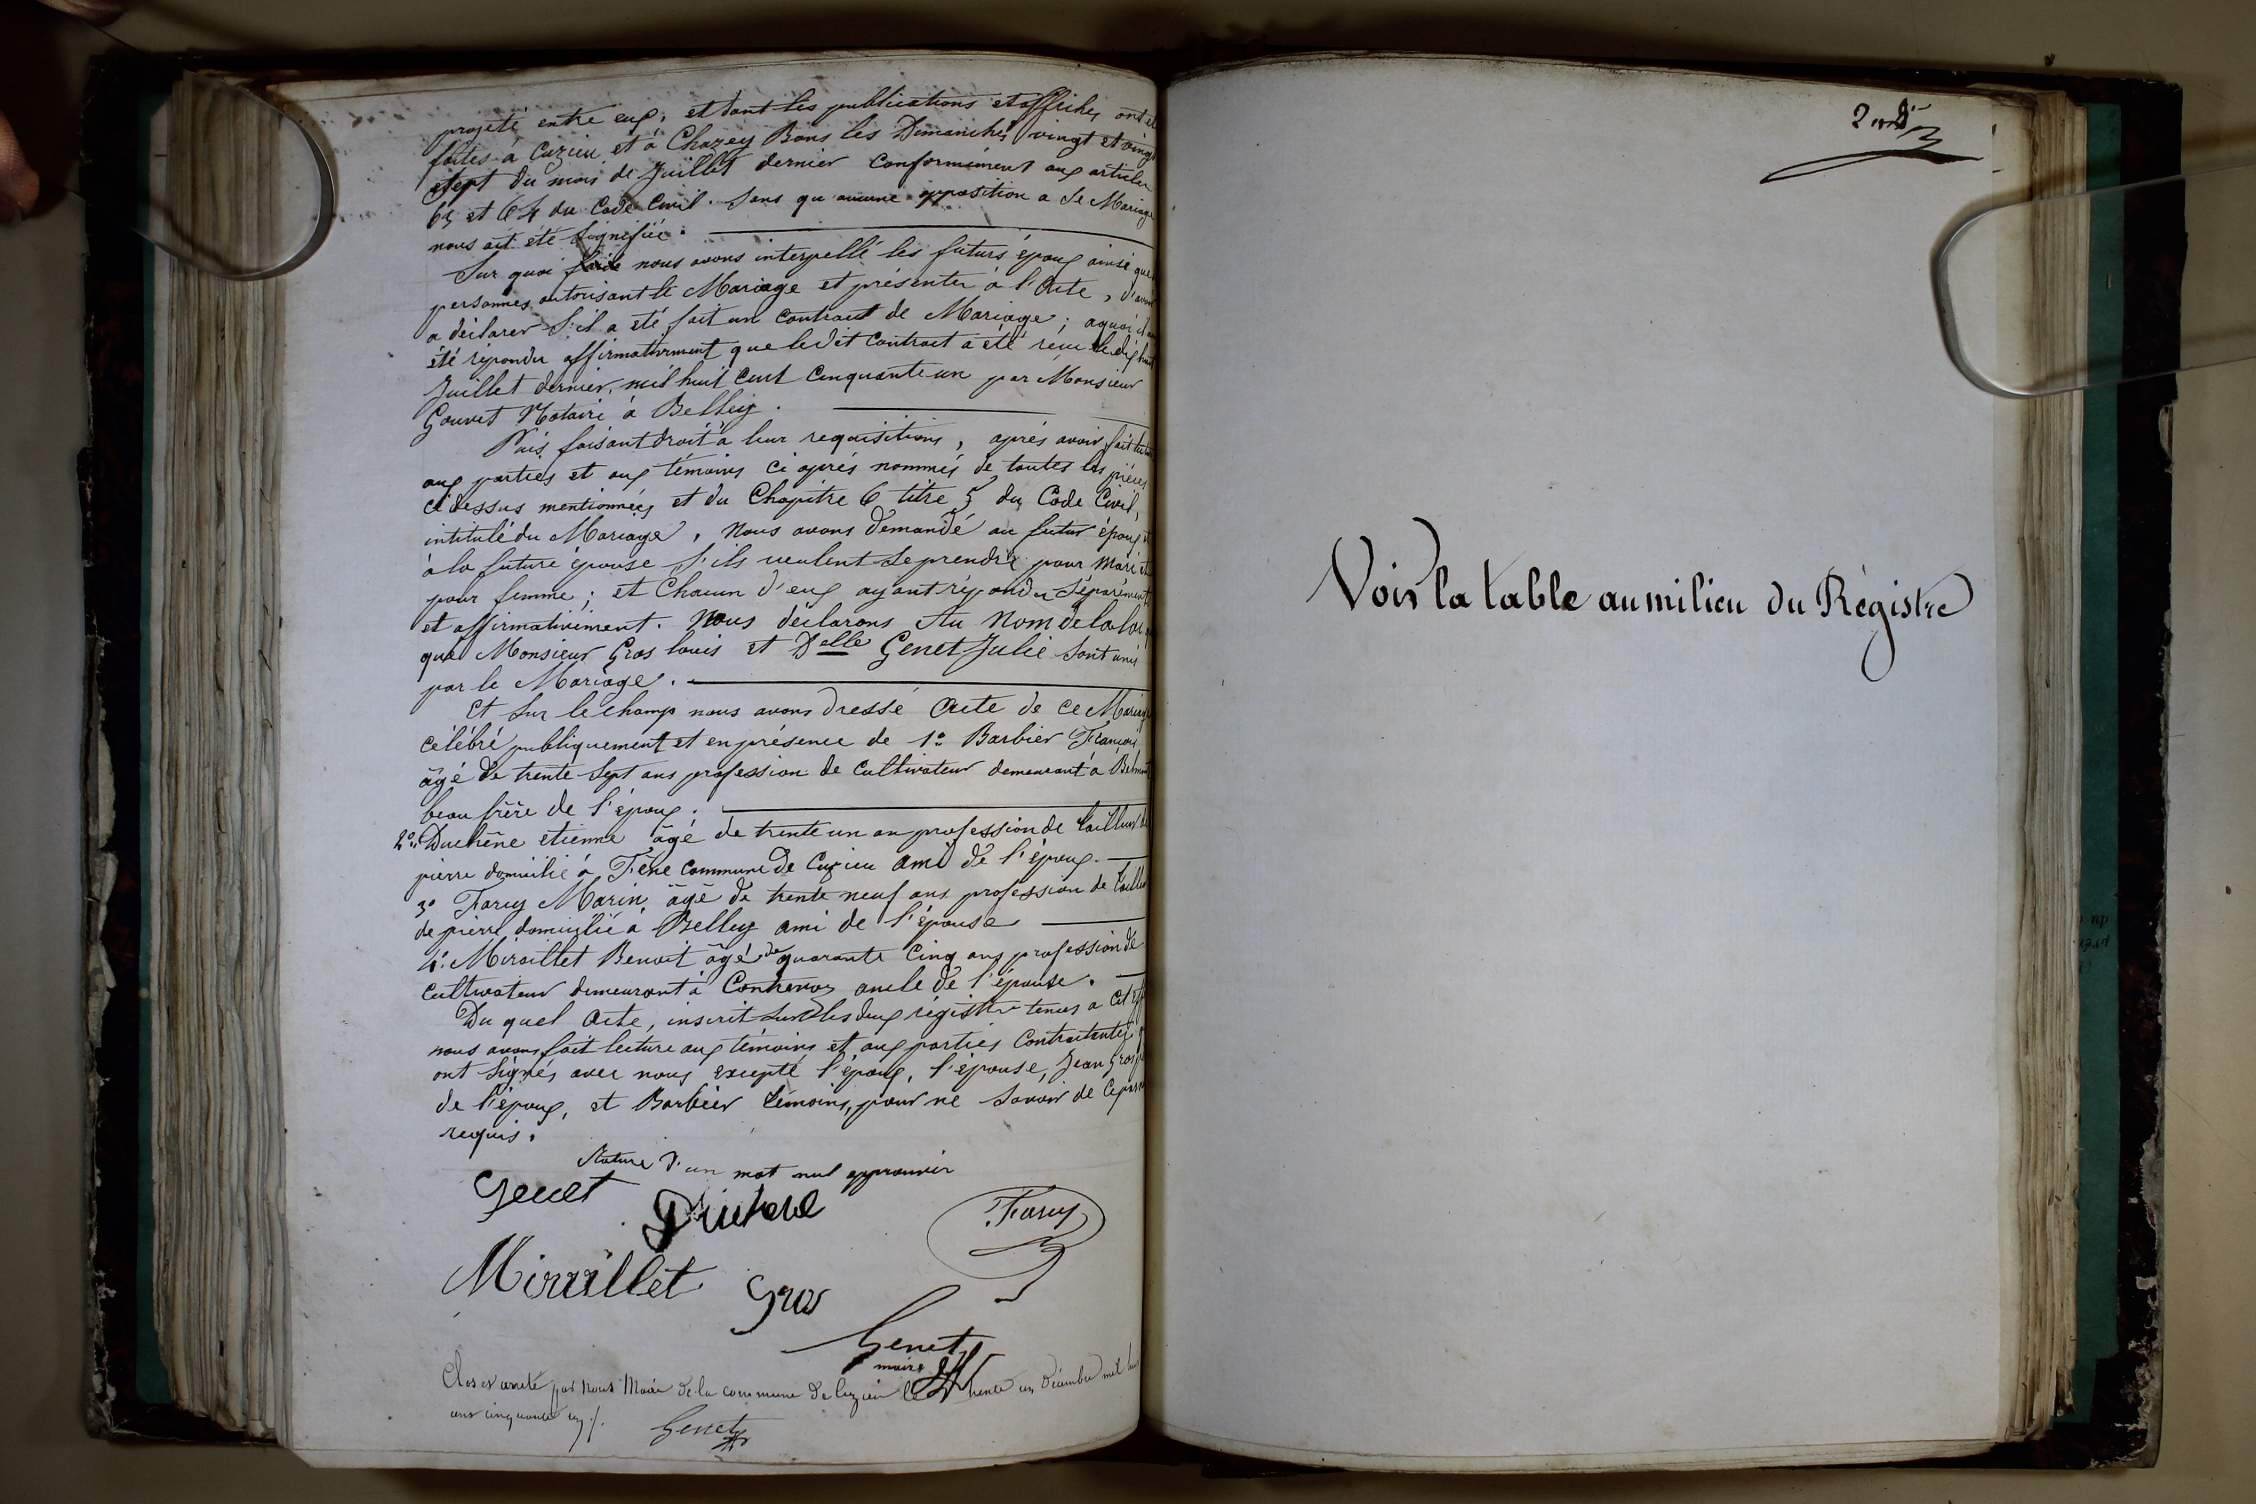 projeté entre eux, et dont les publications et affiches ont été
faites à Cuzieu et à Chazey Bons les Dimanches vingt et vingt
et sept du mois de Juillet dernier conformément aux articles
63 et 64 du Code Civil. Sans qu'aucune opposition a ce Mariage
nous ait été signifiée.
Sur quoi nous avons interpellé les futurs époux ainsi que
personnes autorisant le Mariage et présenter à l'Acte, d'avoir
a déclarer s'il a été fait un contract de Mariage ; aquoi il a
été répondu affirmativement que ledit contract a été recu le dix huit
Juillet dernier, mil huit cent cinquante un par Monsieur
Gouvet Notaire à Belley.
Puis faisant droit à leur requisitions, après avoir fait lecture
aux parties et aux témoins ci après nommés de toutes les pièces
ci dessus mentionnées et du Chapitre 6 titre 5 du Code Civil,
intitulé du Mariage, Nous avons demandé au futur époux et
à la future épouse s'ils veulent se prendre pour mari et
pour femme ; et Chacun d'eux ayant répondu séparément
et affirmativement. Nous déclarons Au Nom de la loi
que Monsieur Gros louis et Delle Genet Julie sont unis
par le Mariage.
Et sur le champ nous avons dressé Acte de ce Mariage
célébré publiquement et en présence de 1° Barbier François
âgé de trente sept ans profession de Cultivateur demeurant à Belmont
beau frère de l'époux.
2° Duchêne etienne âgé de trente un an profession de tailleur de
pierre domicilié à commune de Cuzieu ami de l'époux.
3° Farcy Marin âgé de trente neuf ans profession de tailleur
de pierre domicilié à Belley ami de l'épouse
4° Miraillet Benoit âgé de quarante Cinq ans profession de
Cultivateur demeurant à Contrevoz oncle de l'épouse.
Du quel Acte, inscrit sur les deux régistre tenus a cet
nous avons fait lecture aux témoins et aux parties Contractantes
ont signés avec nous excepté l'époux, l'épouse, Jean Gros
de l'époux, et Barbier témoins, pour ne savoir de ce
requis.
Rature d'un mot nul approuvée
Genet
Duchene
Farcy
Miraillet
Gros
Genet
maire
Clos et arreté par nous Maire de la commune de Cuzieu le trente un décembre mil huit
cent cinquante un ./.
Genet
Voir la table au milieu du Régistre